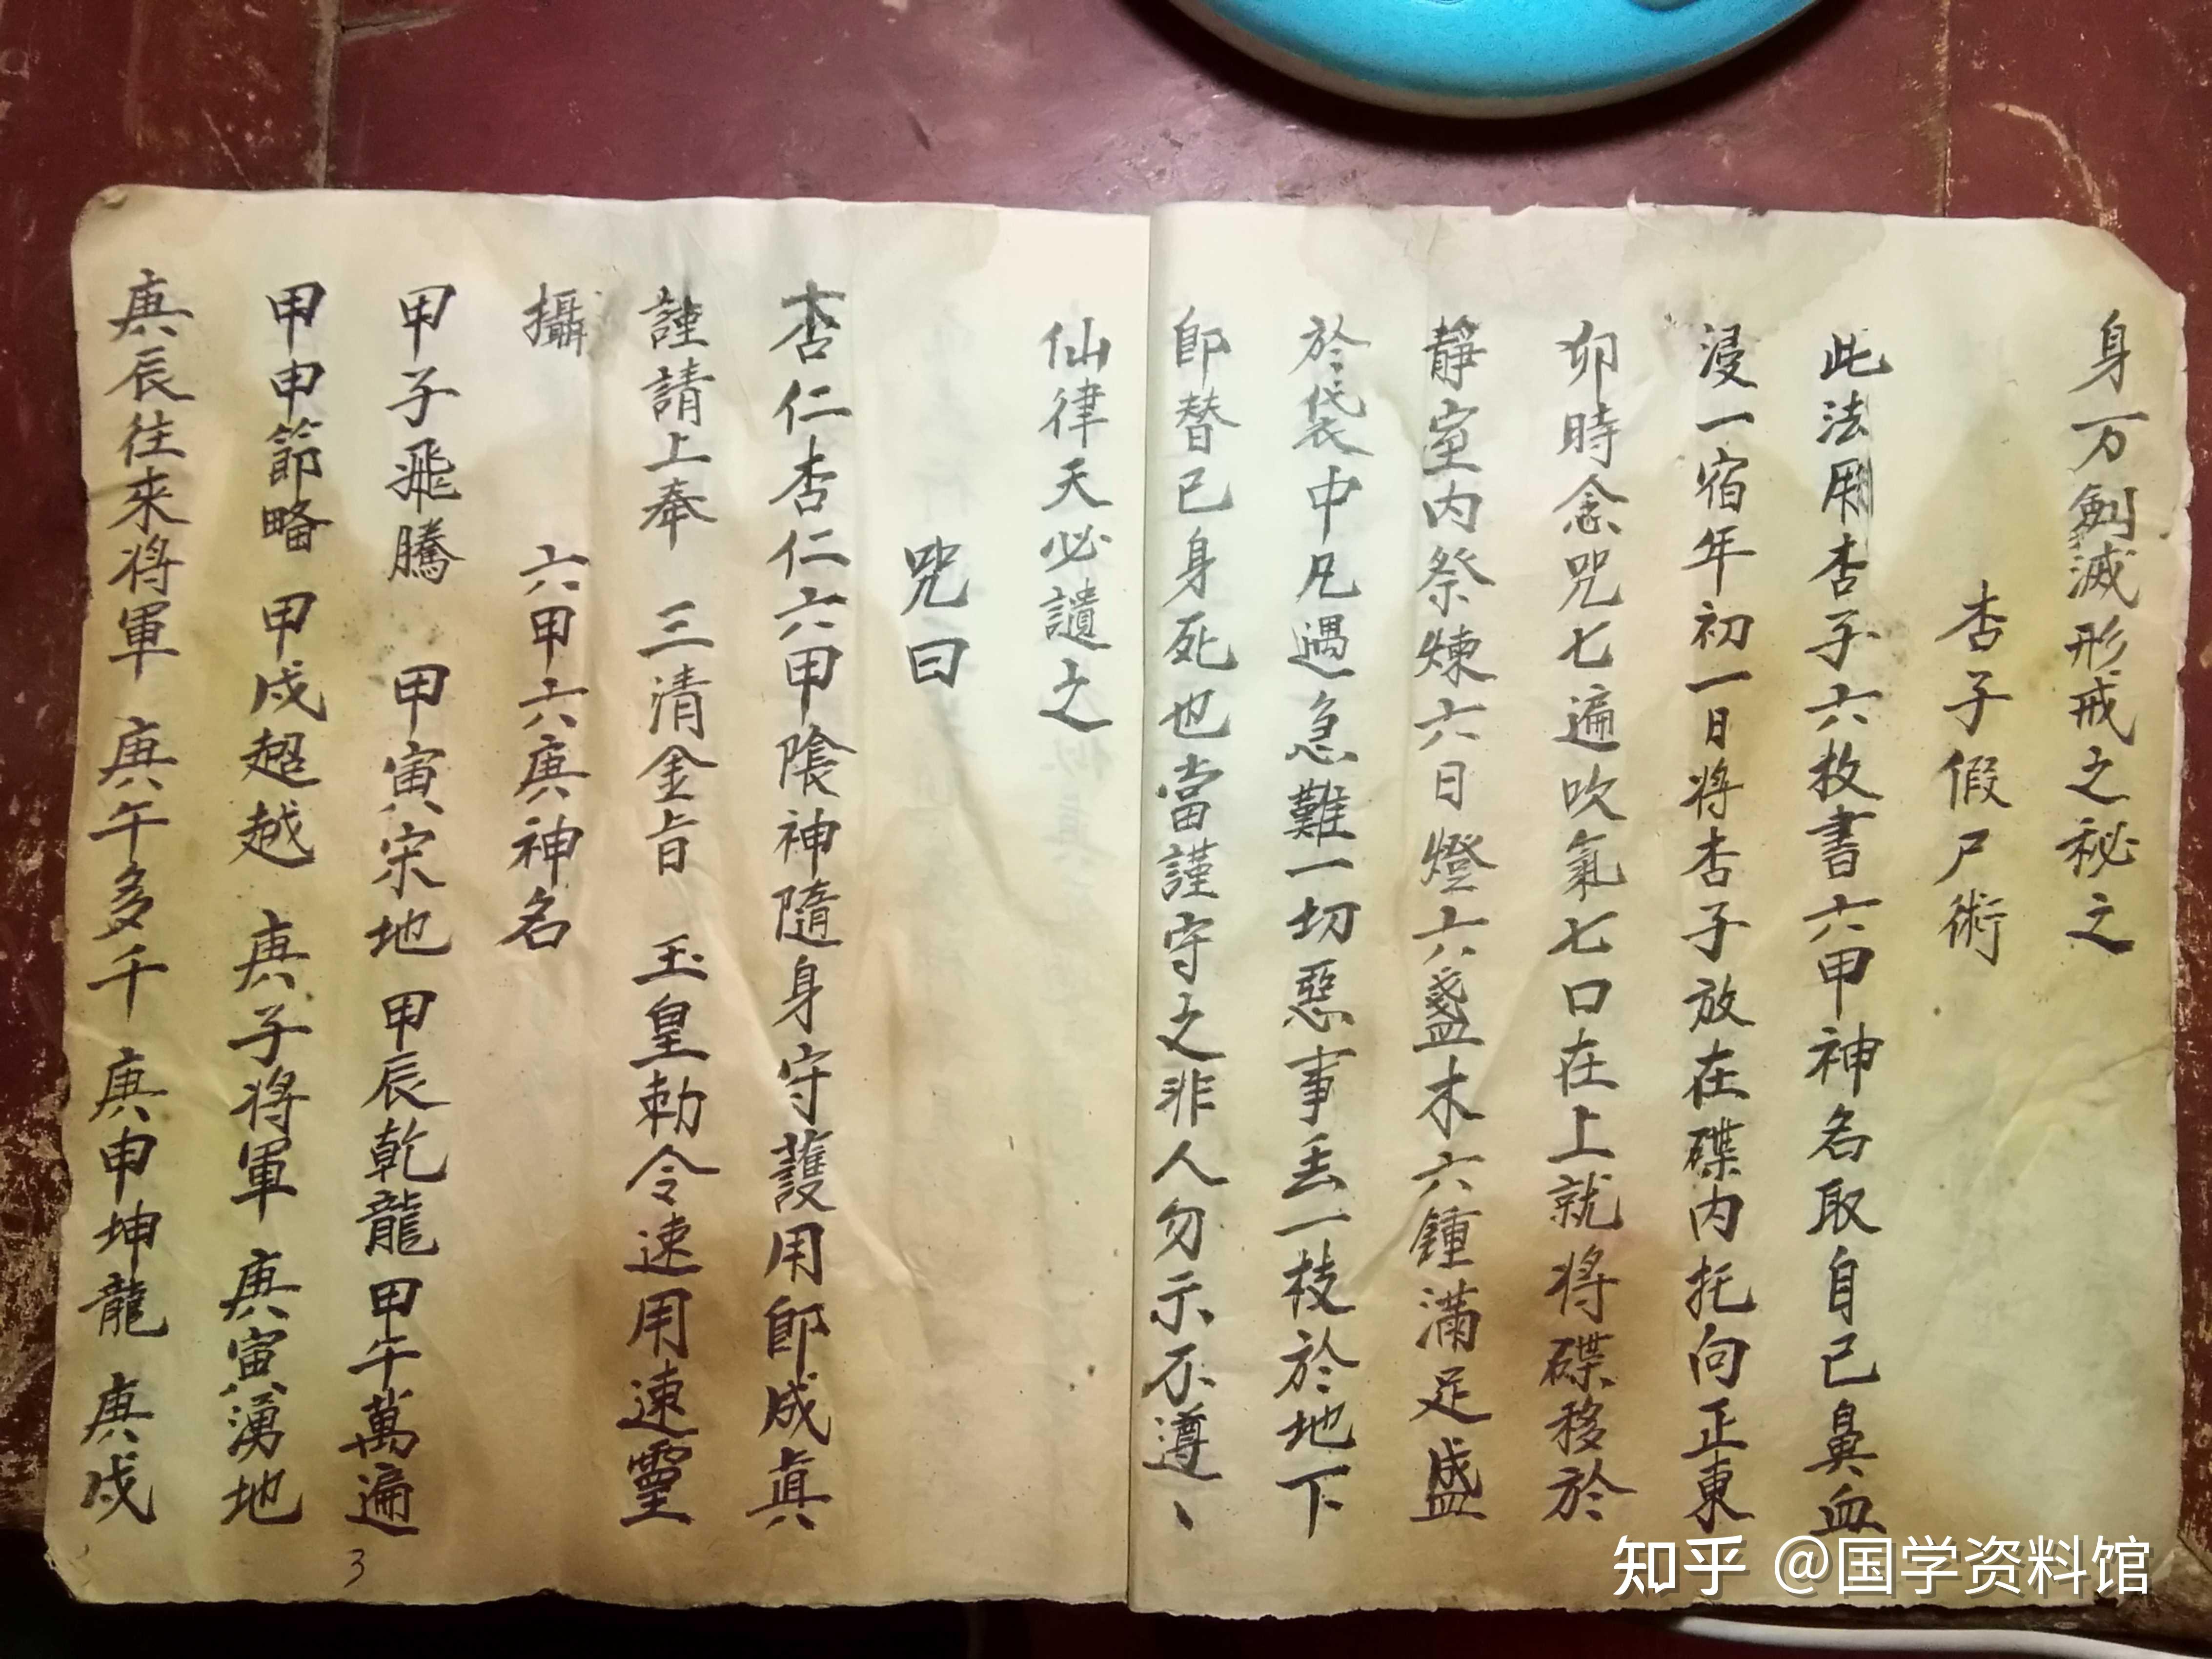 身万劍滅形戒之秘之
杏子假尸術
此法用杏子六枚書六甲神名取自己鼻血
浸一宿年初一日将杏子放在碟内托向正東
卯時念咒七遍吹氣七口在上就将碟移於
靜室内祭煉六日燈六盞木六鍾滿足盛
於袋中凡遇急難一切惡事丢一枝於地下
即替己身死也當謹守之非人勿示不遵、
仙律天必譴之
咒曰
杏仁杏仁六甲陰神隨身守護用即成真
謹請上奉 三清金旨 玉皇勅令速用速靈
攝 六甲六庚神名
甲子飛騰 甲寅宋地 甲辰乾龍 甲午萬遍
甲申節略 甲戌超越 庚子将軍 庚寅湧地
庚辰往來将軍 庚午多千 庚申坤龍 庚戌
3
知乎 @国学资料馆